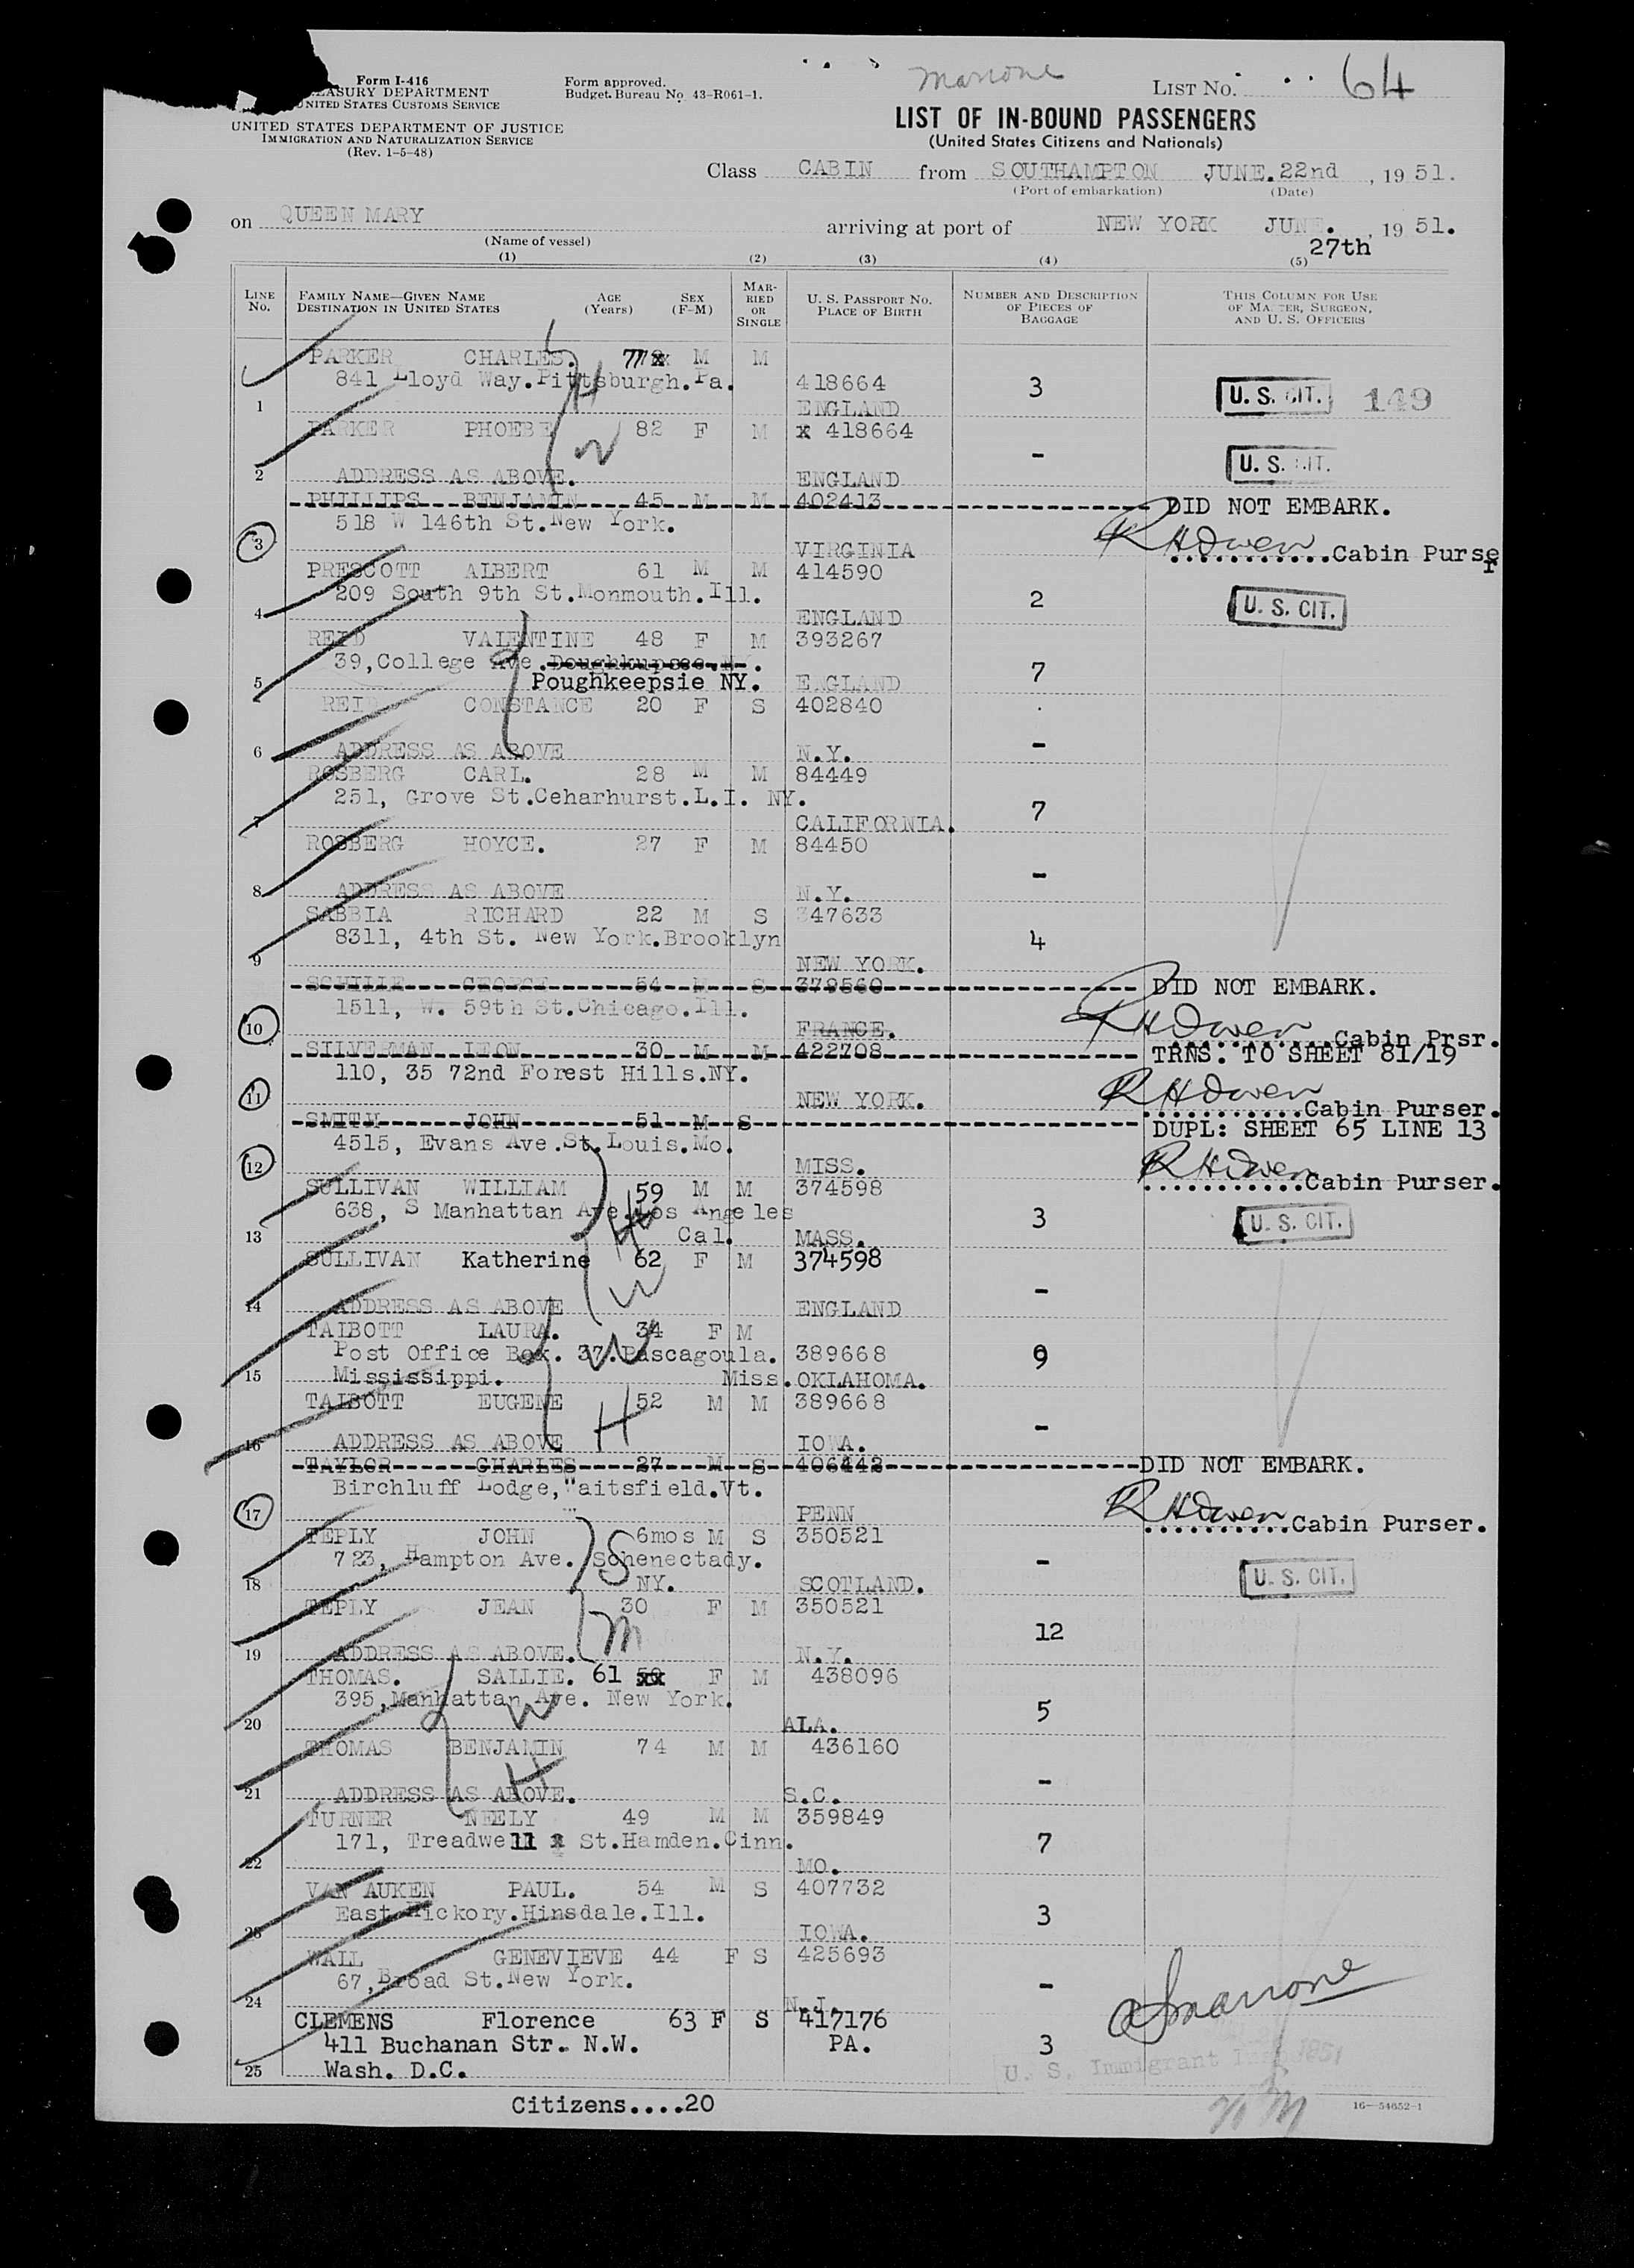 Form I-416
TREASURY DEPARTMENT
UNITED STATES CUSTOMS SERVICE
UNITED STATES DEPARTMENT OF JUSTICE
IMMIGRATION AND NATURALIZATION SERVICE
(Rev. 1-5-48)
Form approved.
Budget Bureau No. 43-R061-1.
Marione
LIST NO. 64
LIST OF IN-BOUND PASSENGERS
(United States Citizens and Nationals)
Class CABIN from SOUTHAMPTON JUNE.22nd, 1951.
(Port of embarkation) (Date)
on QUEEN MARY arriving at port of NEW YORK JUNE. 27th, 1951.
(Name of vessel)
(1) (2) (3) (4) (5)
LINE NO. FAMILY NAME—GIVEN NAME DESTINATION IN UNITED STATES AGE (Years) SEX (F-M) MARRIED OR SINGLE U. S. PASSPORT NO. PLACE OF BIRTH NUMBER AND DESCRIPTION OF PIECES OF BAGGAGE THIS COLUMN FOR USE OF MASTER, SURGEON, AND U. S. OFFICERS
PARKER CHARLES. 77 M M
841 Lloyd Way.Pittsburgh.Pa. 418664 3 U. S. CIT. 149
1 H ENGLAND
PARKER PHOEBE 82 F M x 418664
W - U. S. CIT.
2 ADDRESS AS ABOVE. ENGLAND
PHILLIPS BENJAMIN 45 M M 402413 DID NOT EMBARK.
518 W 146th St.New York.
3 VIRGINIA RHOwen Cabin Purser
PRESCOTT ALBERT 61 M M 414590
209 South 9th St.Monmouth.Ill. 2 U. S. CIT.
4 ENGLAND
REID VALENTINE 48 F M 393267
39,College Ave.Doughkupsee.N.
5 Poughkeepsie NY. ENGLAND 7
REID CONSTANCE 20 F S 402840
6 ADDRESS AS ABOVE N.Y. -
ROSBERG CARL. 28 M M 84449
251, Grove St.Ceharhurst.L.I. NY.
7 CALIFORNIA. 7
ROSBERG HOYCE. 27 F M 84450
8 ADDRESS AS ABOVE N.Y. -
SABBIA RICHARD 22 M S 347633
8311, 4th St. New York.Brooklyn 4
9 NEW YORK.
SCHILLE GEORGE 54 M S 379560 DID NOT EMBARK.
1511, W. 59th St.Chicago.Ill.
10 FRANCE. RHOwen Cabin Prsr.
SILVERMAN LEON 30 M M 422708 TRNS. TO SHEET 81/19
110, 35 72nd Forest Hills.NY.
11 NEW YORK. RHOwen Cabin Purser.
SMITH JOHN 51 M S DUPL: SHEET 65 LINE 13
4515, Evans Ave.St.Louis.Mo.
12 MISS. RHOwen Cabin Purser.
SULLIVAN WILLIAM 59 M M 374598
638, S Manhattan Ave.Los Angeles 3 U. S. CIT.
13 H Cal. MASS.
SULLIVAN Katherine 62 F M 374598
W -
14 ADDRESS AS ABOVE ENGLAND
TAIBOTT LAURA. 34 F M
Post Office Box. 37.Pascagoula. 389668 9
15 Mississippi. W Miss. OKLAHOMA.
TAIBOTT EUGENE 52 M M 389668
16 ADDRESS AS ABOVE H IOWA. -
TAYLOR CHARLES 27 M S 406442 DID NOT EMBARK.
Birchluff Lodge,Waitsfield.Vt.
17 PENN RHOwen Cabin Purser.
TEPLY JOHN 6mos M S 350521
723, Hampton Ave. Schenectady. - U. S. CIT.
18 S NY. SCOTLAND.
TEPLY JEAN 30 F M 350521
M 12
19 ADDRESS AS ABOVE. N.Y.
THOMAS. SALLIE. 61 F M 438096
395,Manhattan Ave. New York. 5
20 W ALA.
THOMAS BENJAMIN 74 M M 436160
H -
21 ADDRESS AS ABOVE. S.C.
TURNER NEELY 49 M M 359849
171, Treadwell x St.Hamden.Cinn. 7
22 MO.
VAN AUKEN PAUL. 54 M S 407732
East Hickory.Hinsdale.Ill. 3
23 IOWA.
WALL GENEVIEVE 44 F S 425693
67,Broad St.New York. -
24 N.J.
CLEMENS Florence 63 F S 417176
411 Buchanan Str. N.W. PA. 3
25 Wash. D.C. U. S. Immigrant 1951
Citizens....20
16—54652-1